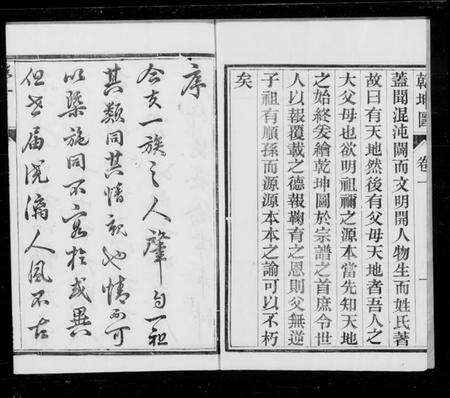 乾坤圖 卷一
蓋聞混沌闢而文明開人物生而姓氏著
故曰有天地然後有父母天地者吾人之
大父母也欲明祖禰之源本當先知天地
之始終爰繪乾坤圖於宗譜之首庶令世
人以報覆載之德報鞠育之恩則父無逆
子祖有順孫而源源本本之諭可以不朽
矣
序
合支一族之人肇自一祖
其類同其情親也情而可
以槩施同不容於或異
但世届澆漓人風不古